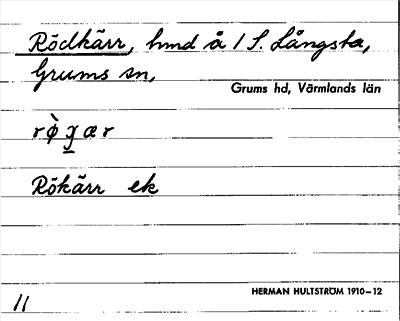 Rödkärr, hmd å 1 S. Långsta,
Grums sn,
Grums hd, Värmlands län
Rökärr ek
HERMAN HULTSTRÖM 1910–12
11